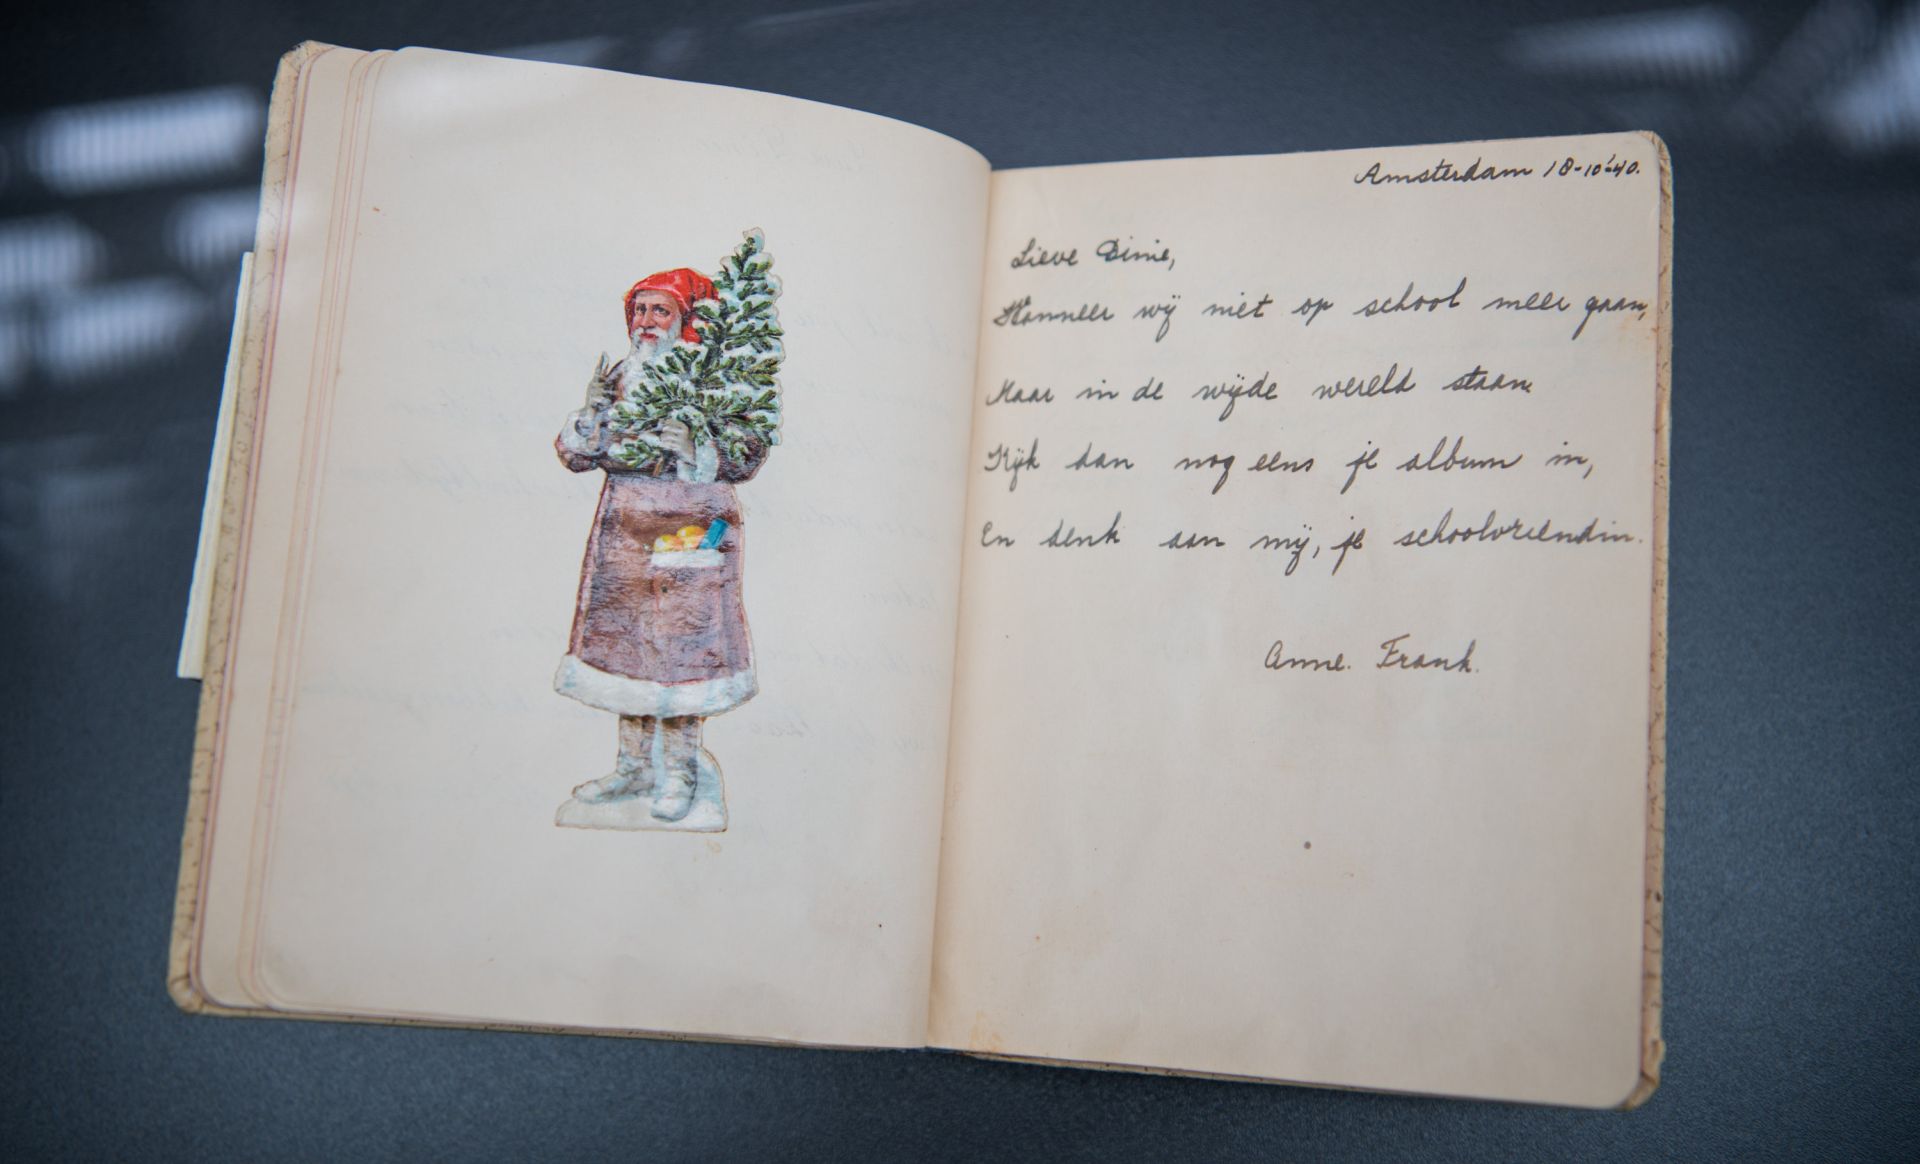 Amsterdam 18-10-'40.
Lieve Dinie,
Wanneer wij niet op school meer gaan,
Maar in de wijde wereld staan
Kijk dan nog eens je album in,
En denk aan mij, je schoolvriendin.
Anne. Frank.